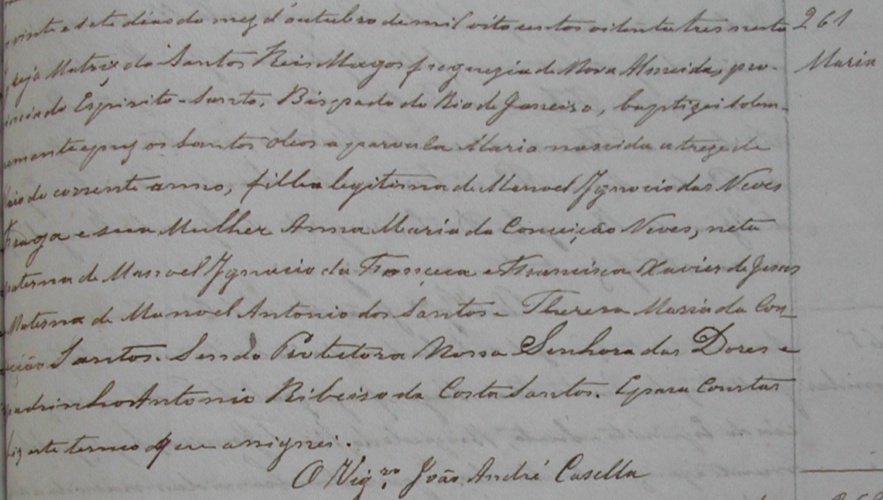 vinte e sete dias do mez d'outubro de mil oito centos oitenta tres nesta
Igreja Matriz dos Santos Reis Magos freguezia de Nova Almeida, pro-
vincia do Espirito-Santo, Bispado do Rio de Janeiro, baptizei solem-
nemente e puz os Santos Oleos a parvula Maria nascida a treze de
Maio do corrente anno, filha legitima de Manoel Ignacio das Neves
Fraga e sua Mulher Anna Maria da Conceição Neves, neta
paterna de Manoel Ignacio da Fonseca e Francisca Xavier de Jesus
Materna de Manoel Antonio dos Santos e Thereza Maria da Con_
ceição Santos. Sendo Protectora Nossa Senhora das Dores e
Padrinho Antonio Ribeiro da Costa Santos. E para Constar
fiz este termo que assignei.
O Vigr.º João André Casella
261
Maria